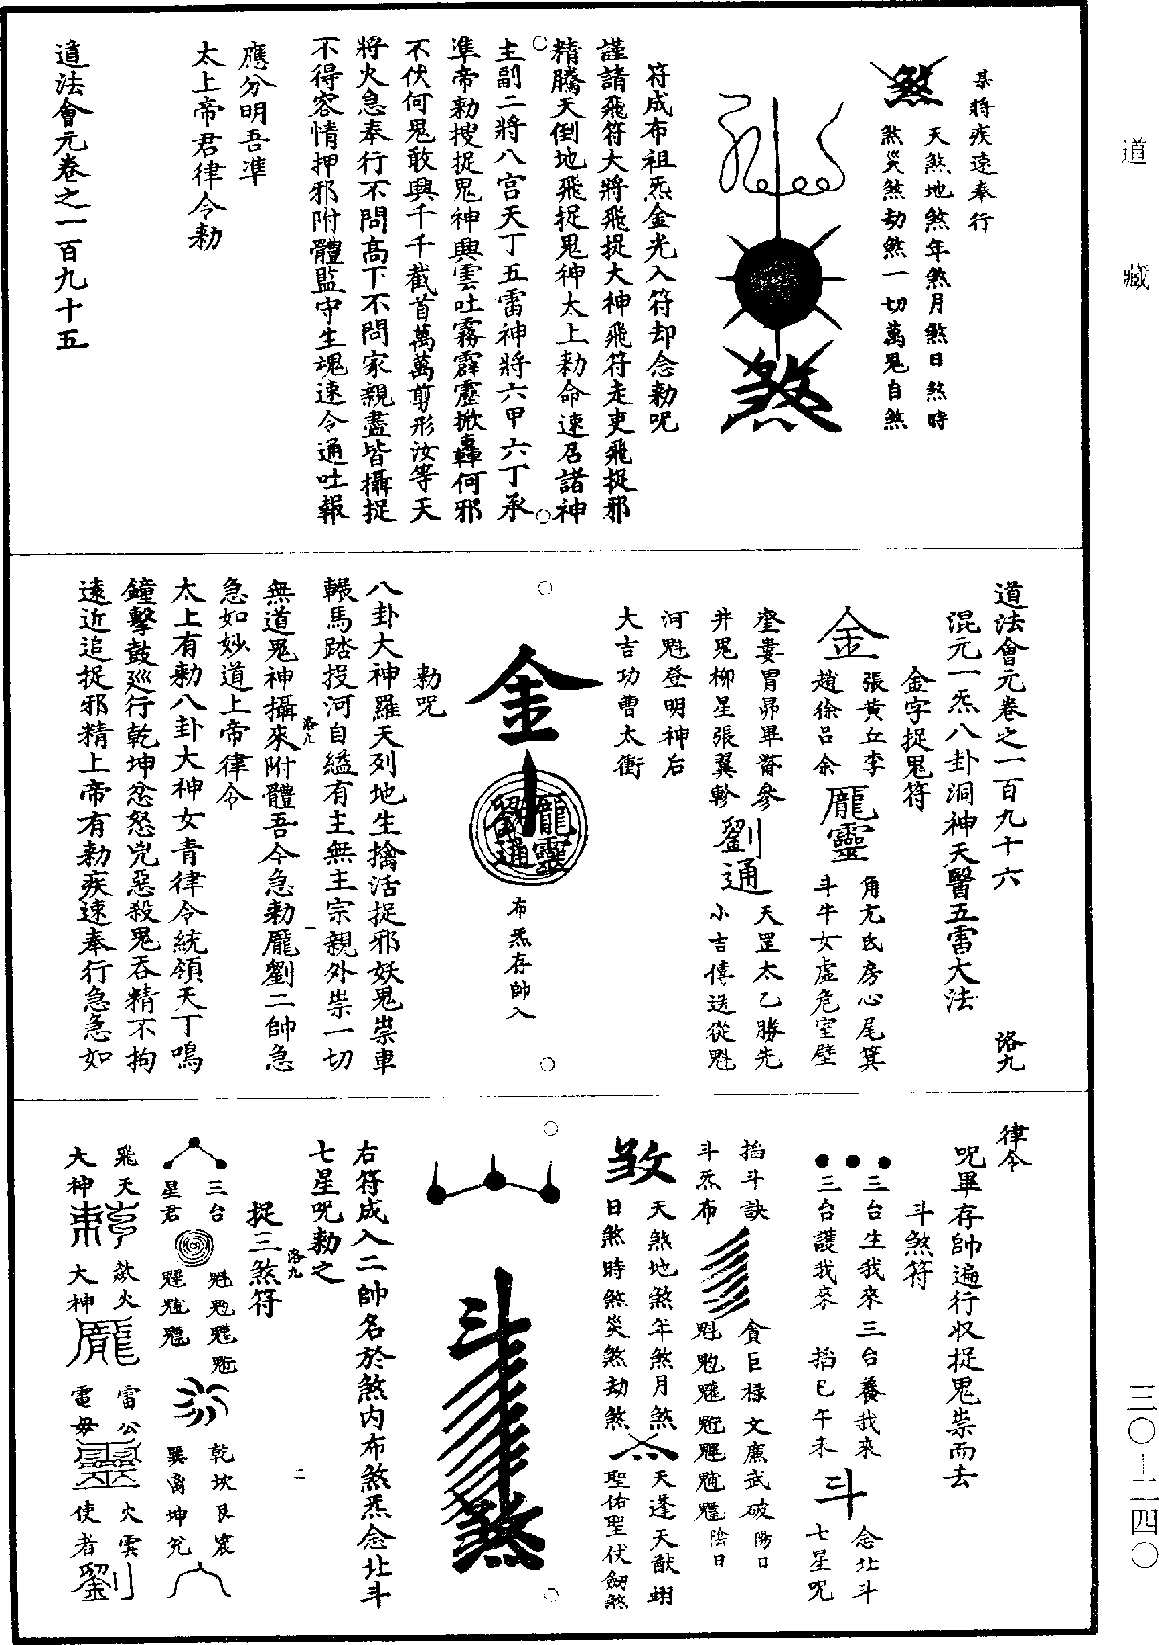 道藏
某將疾速奉行
煞
天煞地煞年煞月煞日煞時
煞災煞劫煞一切萬鬼自煞
煞
符成布祖炁金光入符却念勑呪
謹請飛符大將飛捉大神飛符走吏飛捉邪
精騰天倒地飛捉鬼神太上勑命速召諸神
主副二將八宮天丁五雷神將六甲六丁承
準帝勑搜捉鬼神興雲吐霧霹靂掀轟何邪
不伏何鬼敢興千千截首萬萬剪形汝等天
將火急奉行不問高下不問家親盡皆攝捉
不得容情押邪附體監守生魂速令通吐報
應分明吾準
太上帝君律令勑
道法會元卷之一百九十五
道法會元卷之一百九十六
洛九
混元一炁八卦洞神天醫五雷大法
金字捉鬼符
金
張黃丘李
趙徐呂余
龐靈
角亢氐房心尾箕
斗牛女虛危室壁
奎婁胃昴畢觜參
井鬼柳星張翼軫
劉通
天罡太乙勝先
小吉傳送從魁
河魁登明神后
大吉功曹太衝
金
龐靈
劉通
布炁存帥入
勑呪
八卦大神羅天列地生擒活捉邪妖鬼祟車
輾馬踏投河自縊有主無主宗親外祟一切
洛九
一
無道鬼神攝來附體吾今急勑龐劉二帥急
急如妙道上帝律令
太上有勑八卦大神女青律令統領天丁鳴
鐘擊鼓巡行乾坤忿怒兇惡殺鬼吞精不拘
遠近追捉邪精上帝有勑疾速奉行急急如
律令
呪畢存帥遍行收捉鬼祟而去
斗煞符
三台生我來三台養我來
三台護我來
掐巳午未
斗
念北斗
七星呪
掐斗訣
斗炁布
貪巨祿文廉武破
陽日
陰日
天煞地煞年煞月煞
日煞時煞災煞劫煞
天蓬天猷翊
聖佑聖伏劍煞
斗
煞
右符成入二帥名於煞內布煞炁念北斗
七星呪勑之
洛九
二
捉三煞符
三台
星君
乾坎艮震
巽离坤兌
飛天
大神
歘火
大神
龐
雷公
電母
靈
火雲
使者
劉
三〇—二四〇